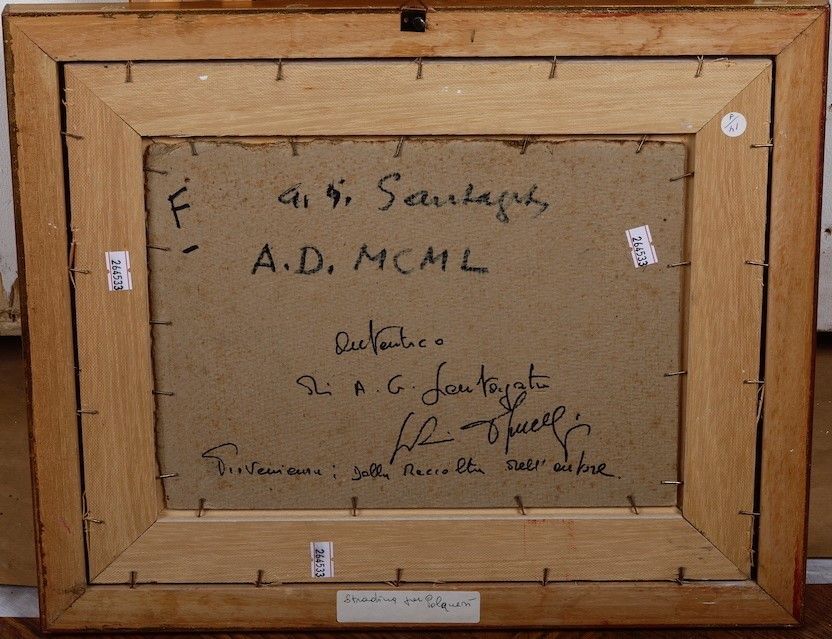 F/41
F
a. G. Santagata
A.D. MCML
264533
264533
autentico
di A. G. Santagata
Provenienza: dalla Raccolta dell'autore.
264533
Stradina per